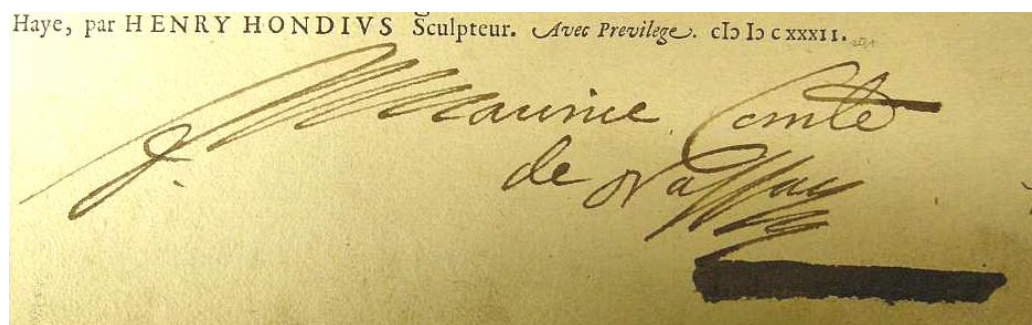 Haye, par HENRY HONDIVS Sculpteur. Avec Previlege. cIɔ Iɔ c xxxII.
J. Maurice Comte
de Nassau